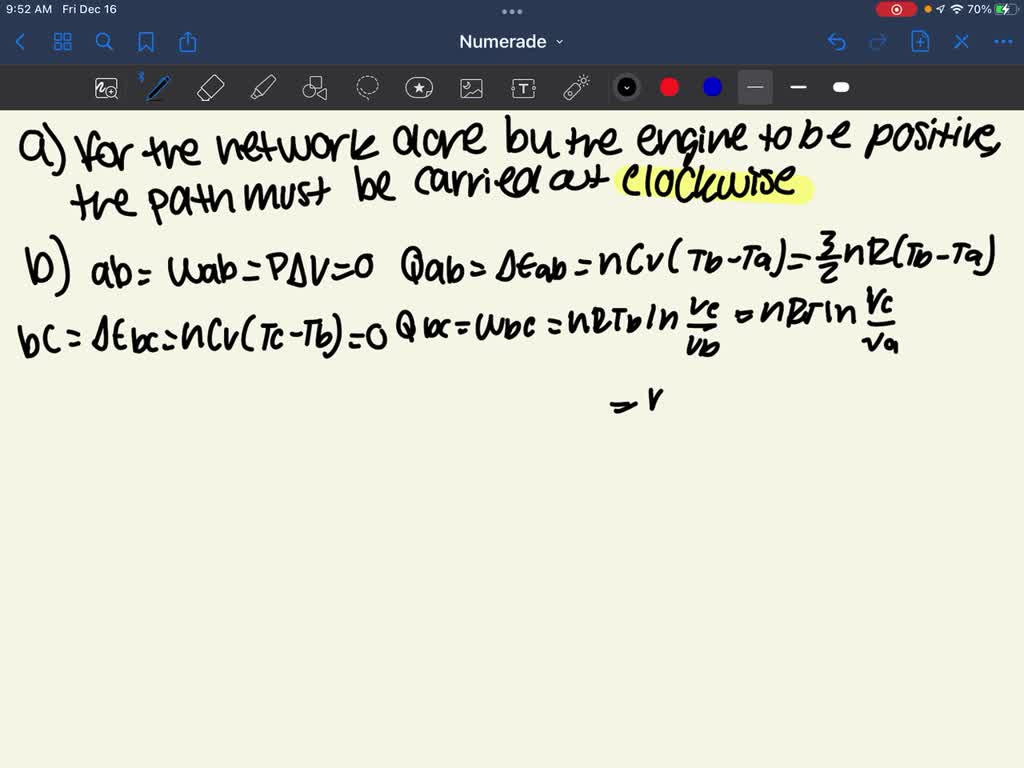 9:52 AM Fri Dec 16
70%
Numerade
a) for the network done by the engine to be positive,
the path must be carried out clockwise
b) ab = Wab = PΔV = 0 Qab = ΔEab = nCv(Tb-Ta) = 3/2 nR(Tb-Ta)
bc = ΔEbc = nCv(Tc-Tb) = 0 Qbc = Wbc = nRTb ln Vc/Vb = nRT ln Vc/Va
=